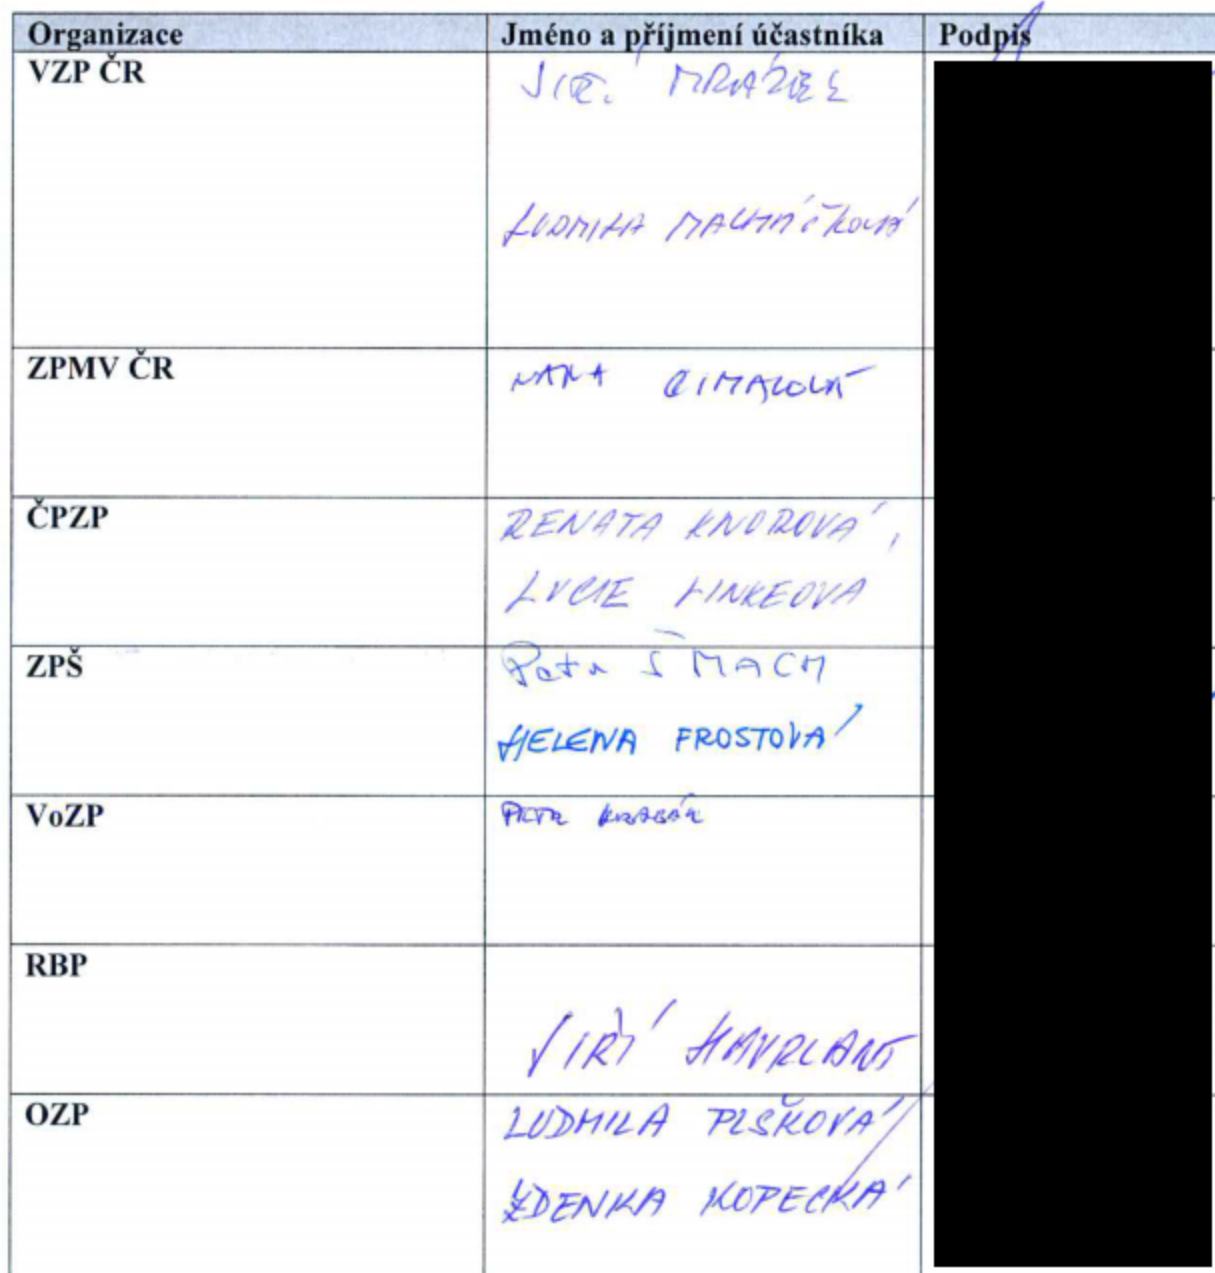 Organizace Jméno a příjmení účastníka Podpis
VZP ČR
MRÁZEK
LUDMILA
ZPMV ČR
ČPZP RENATA KNOROVÁ,
LUCIE LINKEOVA
ZPŠ Petr ŠMACH
HELENA FROSTOVÁ
VoZP PETR
RBP
JIŘÍ HAVRLANT
OZP LUDMILA PLŠKOVÁ
ZDENKA KOPECKÁ